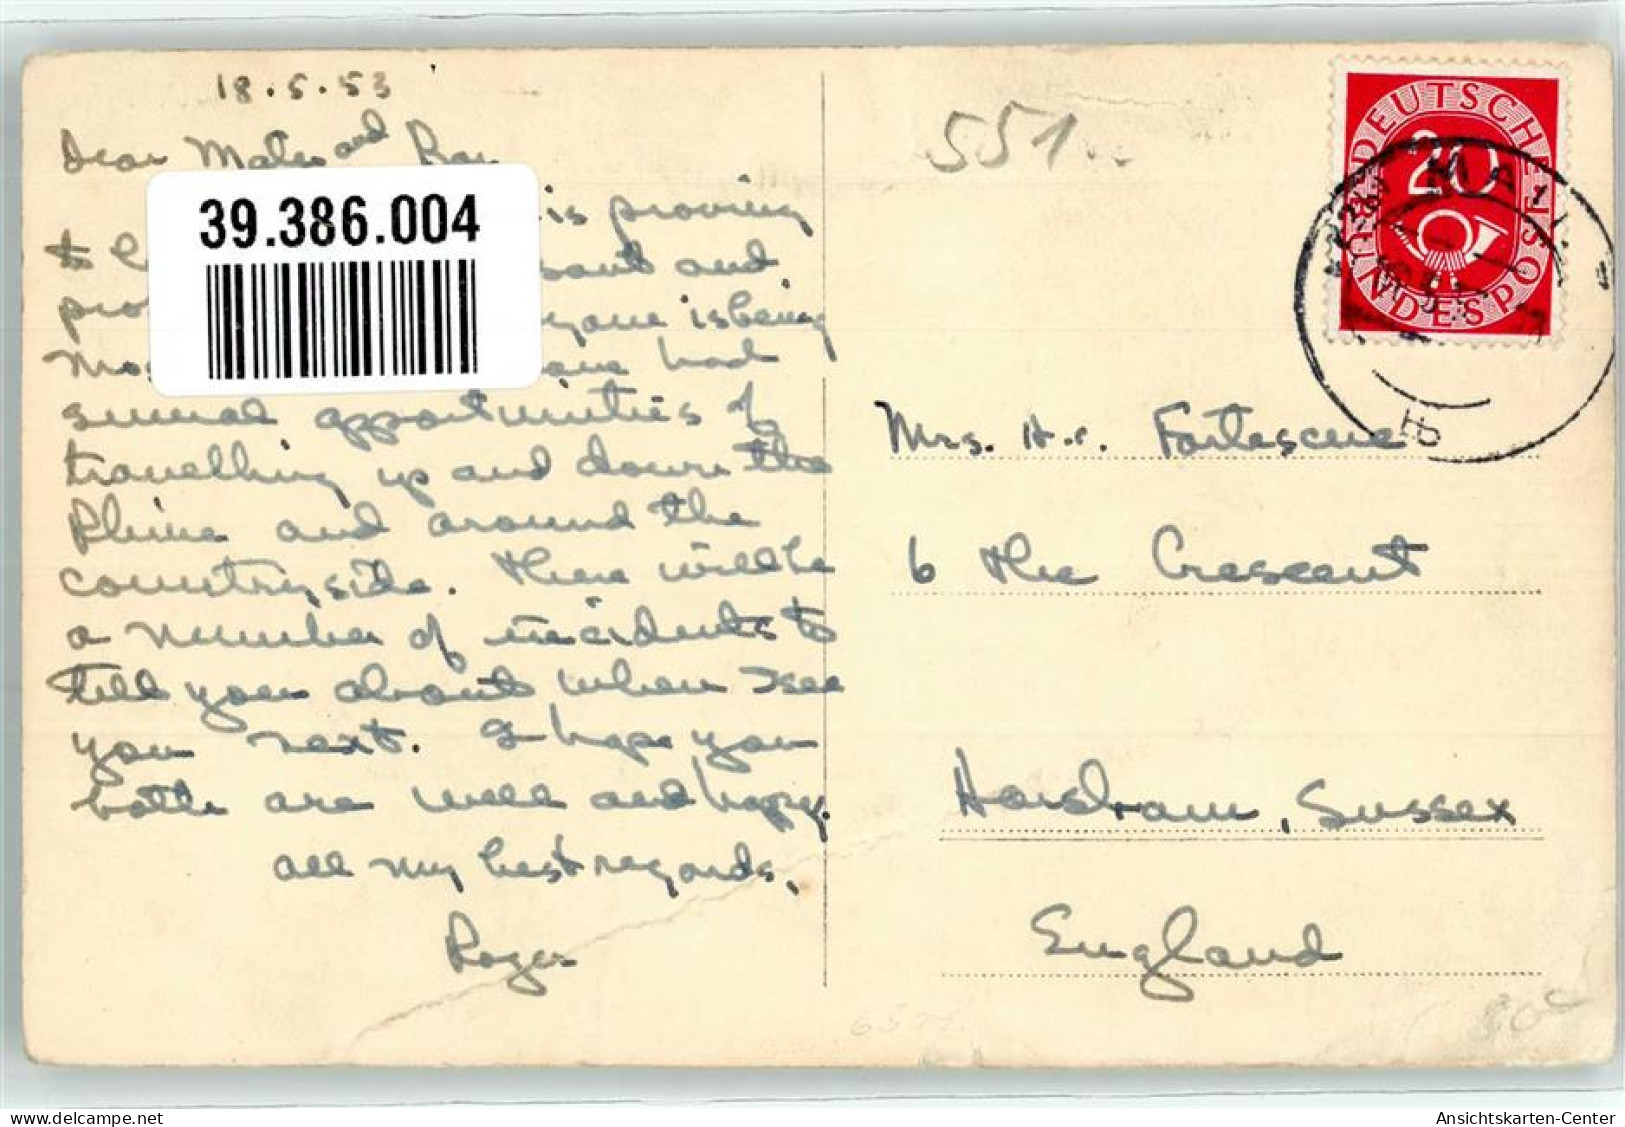 18.5.53
Dear Mater and Ray
39.386.004
is proving
to
sant and
pro
yone is being
Mos have had
several opportunities of
travelling up and down the
Rhine and around the
countryside. There will be
a number of incidents to
tell you about when I see
you next. I hope you
both are well and happy.
All my best regards,
Roger
551
DEUTSCHE
BUNDESPOST
20
Mrs. H.r. Fortescue
6 The Crescent
Horsham, Sussex
England
80c
oldthing.com
Ansichtskarten-Center